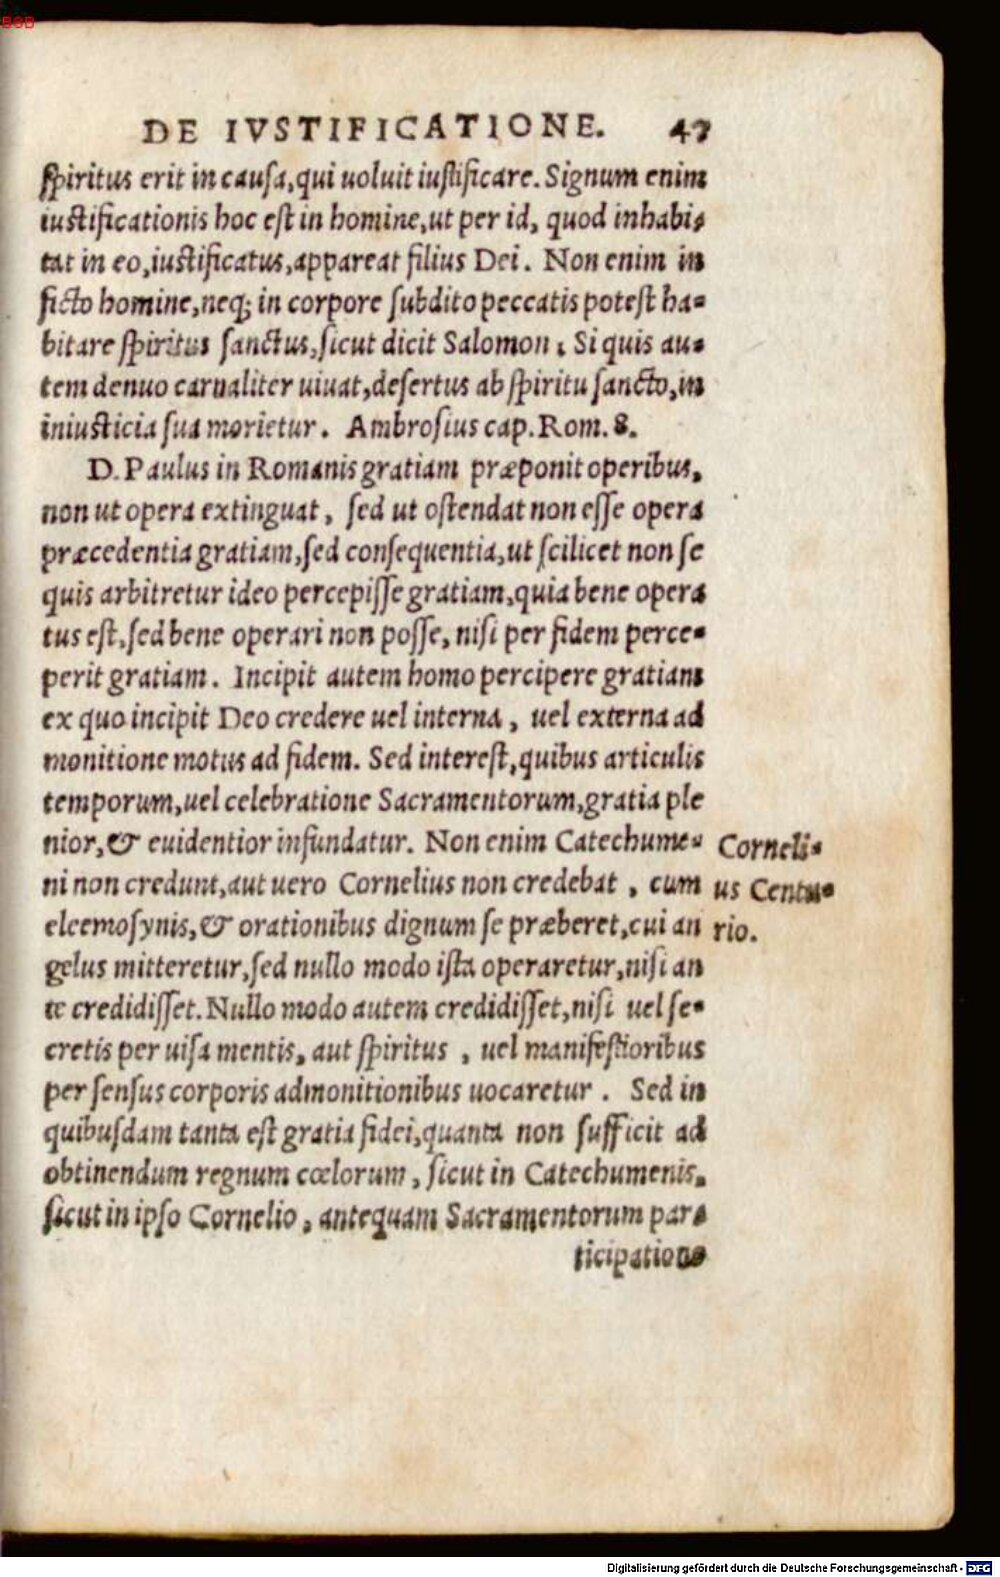 BSB
DE IVSTIFICATIONE. 47
spiritus erit in causa, qui uoluit iustificare. Signum enim
iustificationis hoc est in homine, ut per id, quod inhabi-
tat in eo, iustificatus, appareat filius Dei. Non enim in
ficto homine, neq; in corpore subdito peccatis potest ha-
bitare spiritus sanctus, sicut dicit Salomon. Si quis au-
tem denuo carnaliter uiuat, desertus ab spiritu sancto, in
iniusticia sua morietur. Ambrosius cap. Rom. 8.
D. Paulus in Romanis gratiam præponit operibus,
non ut opera extinguat, sed ut ostendat non esse opera
præcedentia gratiam, sed consequentia, ut scilicet non se
quis arbitretur ideo percepisse gratiam, quia bene opera
tus est, sed bene operari non posse, nisi per fidem perce-
perit gratiam. Incipit autem homo percipere gratiam
ex quo incipit Deo credere uel interna, uel externa ad
monitione motus ad fidem. Sed interest, quibus articulis
temporum, uel celebratione Sacramentorum, gratia ple
nior, & euidentior infundatur. Non enim Catechume-
ni non credunt, aut uero Cornelius non credebat, cum
eleemosynis, & orationibus dignum se præberet, cui an
gelus mitteretur, sed nullo modo ista operaretur, nisi an
te credidisset. Nullo modo autem credidisset, nisi uel se-
cretis per uisa mentis, aut spiritus, uel manifestioribus
per sensus corporis admonitionibus uocaretur. Sed in
quibusdam tanta est gratia fidei, quanta non sufficit ad
obtinendum regnum cœlorum, sicut in Catechumenis,
sicut in ipso Cornelio, antequam Sacramentorum par-
ticipatione
Corneli-
us Centu-
rio.
Digitalisierung gefördert durch die Deutsche Forschungsgemeinschaft - DFG